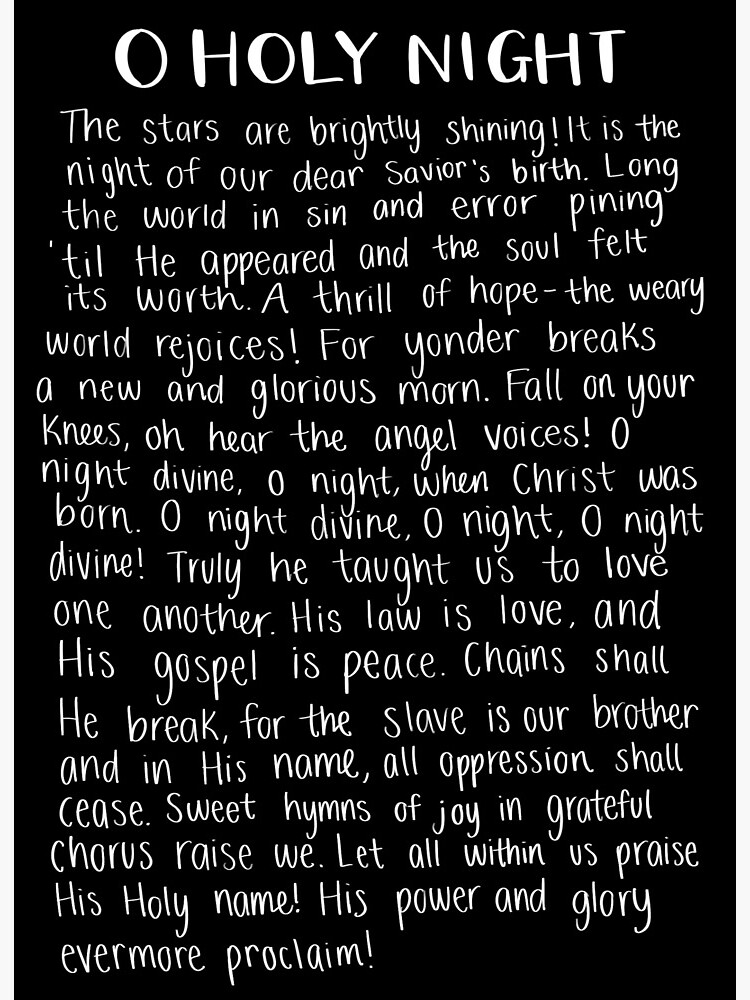 O HOLY NIGHT
The stars are brightly shining! It is the
night of our dear Savior's birth. Long
the world in sin and error pining
'til He appeared and the soul felt
its worth. A thrill of hope - the weary
world rejoices! For yonder breaks
a new and glorious morn. Fall on your
Knees, oh hear the angel voices! O
night divine, O night, when Christ was
born. O night divine, O night, O night
divine! Truly he taught us to love
one another. His law is love, and
His gospel is peace. Chains shall
He break, for the slave is our brother
and in His name, all oppression shall
cease. Sweet hymns of joy in grateful
chorus raise we. Let all within us praise
His Holy name! His power and glory
evermore proclaim!